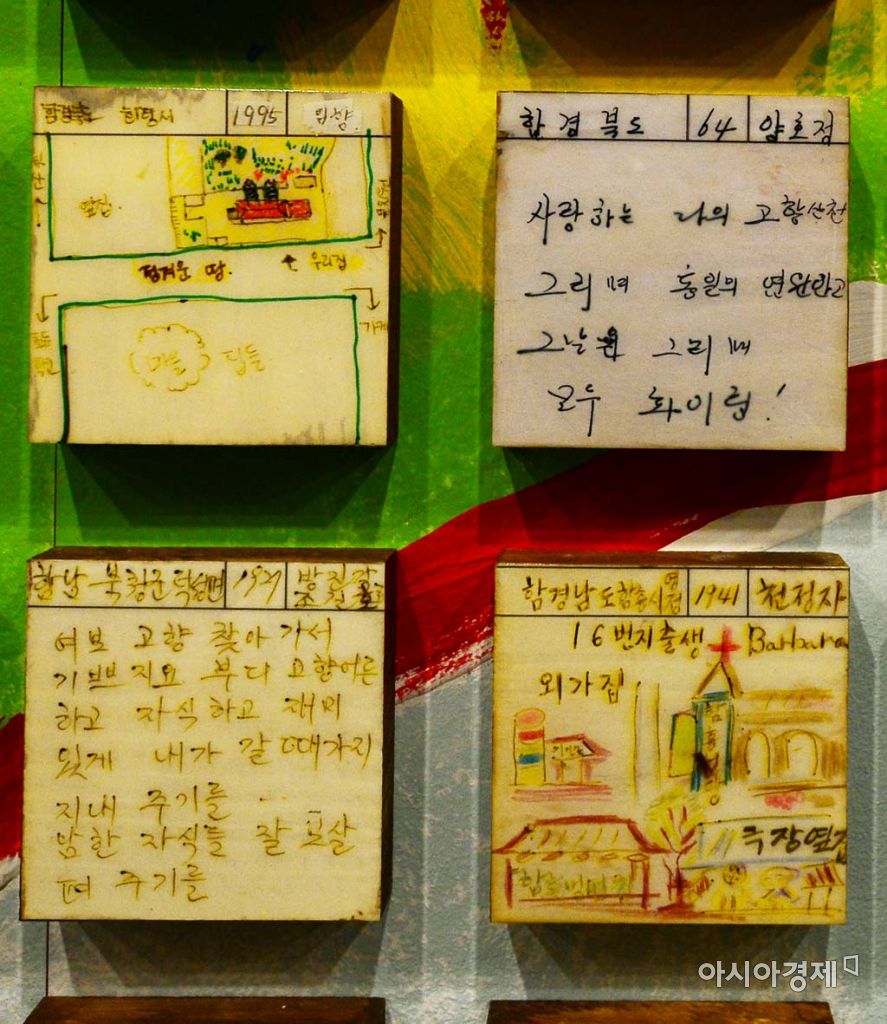 1995
정겨운 땅.
우리집
가게
마을 집들
함경북도 64 양호정
사랑하는 나의 고향산천
그리며 통일의 염원안고
그날을 그리며
모두 화이링!
함남 북청군 덕성면 1927
여보 고향 찾아가서
기쁘브지요 부디 고향어른
하고 자식하고 재미
있게 내가 갈 때가지
지내 주기를 ..
남한 자식들 잘 보살
펴 주기를
함경남도함흥시 1941 천정자
16번지출생 Barbara
외가집
극장옆집
아시아경제